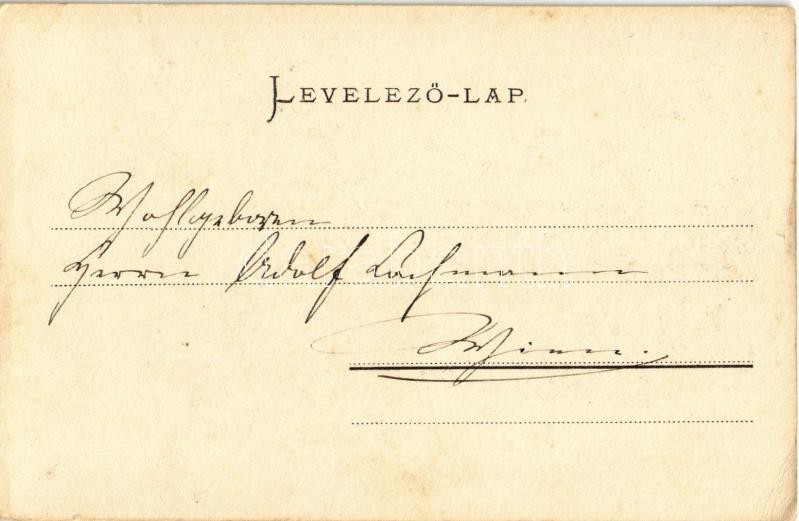 LEVELEZŐ-LAP.
Wohlgeboren
Herrn Adolf Lachmann
Wien.